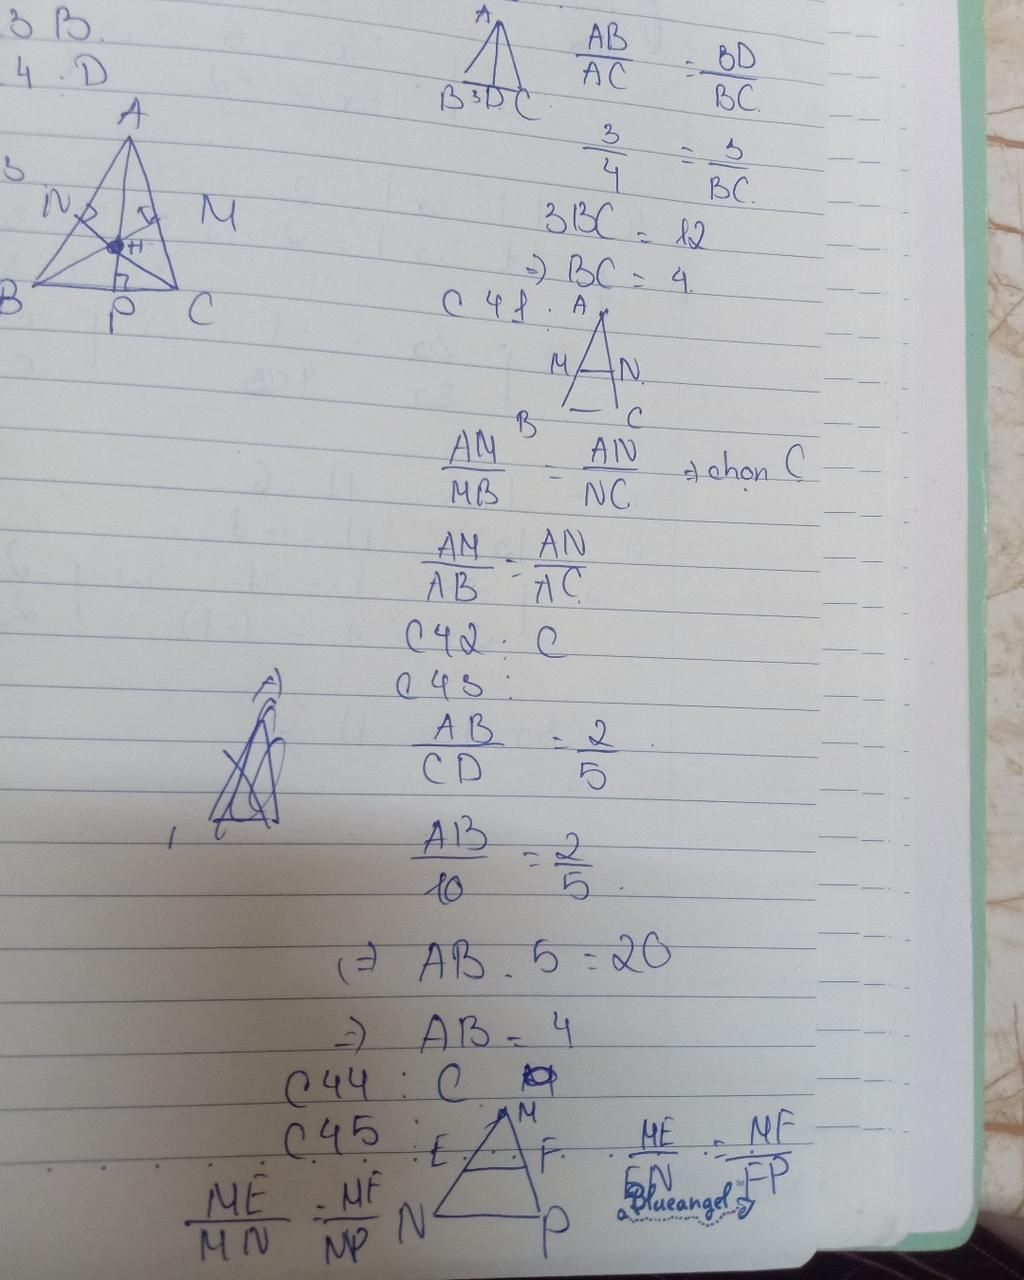 3 B.
4. D
A
N
M
H
B
P
C
3
A
B 3 D C
AB/AC = BD/BC.
3/4 = 3/BC.
3BC = 12
=> BC = 4.
C41. A
M N.
B C
AM/MB = AN/NC => chọn C
AM/AB = AN/AC.
C42: C
C43:
AB/CD = 2/5
AB/10 = 2/5.
(=) AB. 5 = 20
=> AB = 4
C44: C
C45:
M
E F
N P
ME/EN = MF/FP
ME/MN = MF/NP
Blueangel